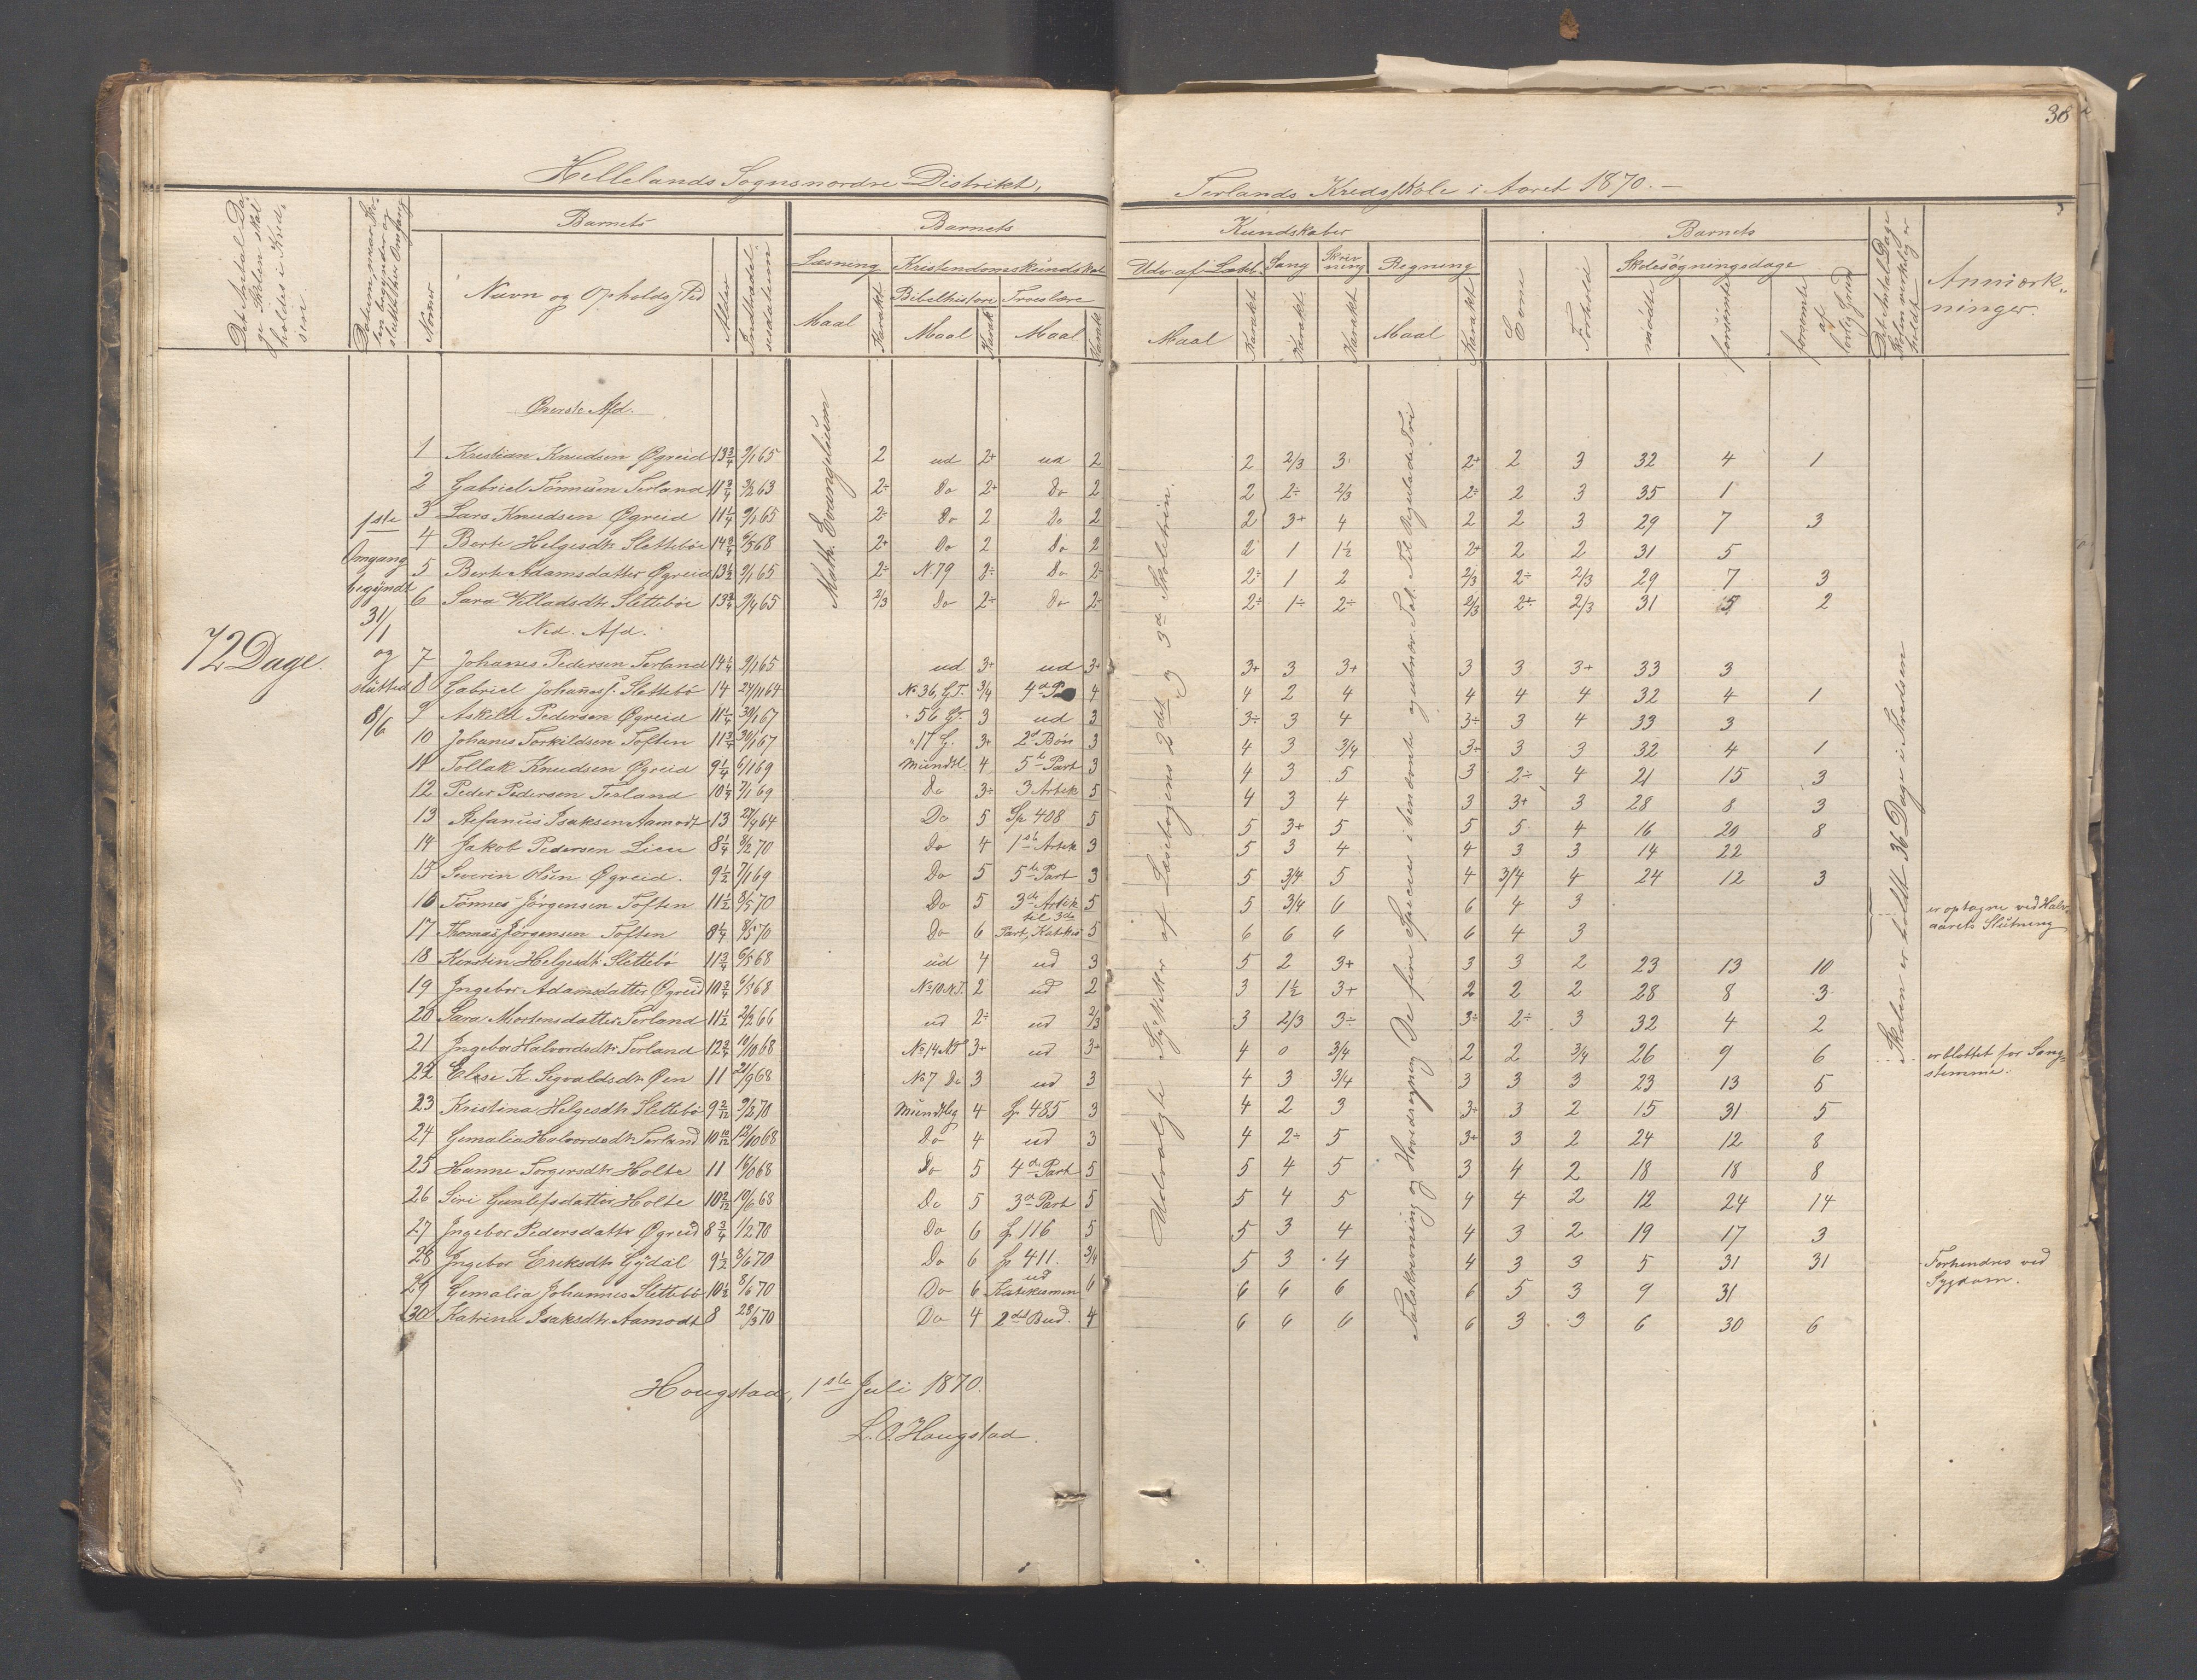 Hellelands Sognsnordre Distrikt,
Terlands Kredsskole i Aaret 1870.
36
Det Antal Dage Skolen skal holdes i Kredsen.
Datum, naar Skolen begynder og slutter hver Omgang
Barnets
Nomer
Navn og Opholdssted
Alder
Indtrædelsesdatum
Barnets
Læsning
Maal
Karakt
Kristendomskundskab
Bibelhistorie
Maal
Karakt
Troeslære
Maal
Karakt
Kundskaber
Udv. af Læseb.
Maal
Karakt
Sang
Karakt
Skrivning
Karakt
Regning
Maal
Karakt
Barnets
Evne
Forhold
Skolesøgningsdage
mødte
forsømte
forsømte af lovlig Grund
Det Antal Dage Skolen virkelig er holdt
Anmærkninger.
72 Dage.
1ste Omgang begyndt 31/1 og slutted 8/6
Math. Evangelium
Udvalgte Stykker af Læsebogens 2det og 3de Skoletrin.
Talskrivning og Hovedregning De fire Specier i benævnte og ubnæv. Tal. Til Reguladetri
Skolen er holdt 36 Dage i Kredsen
Øverste Afd.
1 Kristian Knudsen Øgreid 13 3/4 9/1 65 2 ud 2+ ud 2 2 2/3 3 2+ 2 3 32 4 1
2 Gabriel Tønnesen Terland 11 3/4 3/2 63 2÷ Do 2+ Do 2 2 2÷ 2/3 2÷ 2 3 35 1
3 Lars Knudsen Øgreid 11 1/4 9/1 65 2÷ Do 2 Do 2 2 3+ 4 2 2 3 29 7 3
4 Berte Helgesdtr Slettebøe 14 3/4 6/5 68 2+ Do 2 Do 2 2 1 1 1/2 2+ 2 2 31 5
5 Berte Adamsdatter Øgreid 13 1/2 9/1 65 2÷ N. 79 2÷ Do 2÷ 2÷ 1 2 2/3 2÷ 2/3 29 7 3
6 Sara Villadsdtr Slettebøe 13 3/4 9/4 65 2/3 Do 2÷ Do 2÷ 2÷ 1÷ 2÷ 2/3 2÷ 2/3 31 5 2
Ned. Afd.
7 Johanes Pedersen Terland 14 1/4 9/1 65 ud 3+ ud 3+ 3+ 3 3+ 3 3 3+ 33 3
8 Gabriel Johaness. Slettebø 14 24/11 64 No 36, G.T. 3/4 4de P 4 4 2 4 4 4 4 32 4 1
9 Askild Pedersen Øgreid 11 1/4 30/1 67 " 56 G. 3 ud 3 3÷ 3 4 3÷ 3 4 33 3
10 Johanes Torkildsen Toften 11 3/4 30/1 67 " 17 G. 3+ 2d Bøn 3 4 3 3/4 3+ 3 3 32 4 1
11 Tollak Knudsen Øgreid 9 1/4 6/1 69 Mundtl. 4 5te Part 3 4 3 5 3 2÷ 4 21 15 3
12 Peder Pedersen Terland 10 1/4 7/1 69 Do 3÷ 3 Artik 5 4 3 4 3 3+ 3 28 8 3
13 Stefanus Isaksen Aamodt 13 27/4 64 Do 5 Sp 408 5 5 3+ 5 5 5 4 16 20 8
14 Jakob Pedersen Lien 8 1/4 8/2 70 Do 4 1ste Artik 3 5 3 4 4 3 3 14 22
15 Severin Olsen Øgreid. 9 1/2 7/1 69 Do 5 5te Part 3 5 3/4 5 4 3/4 4 24 12 3
16 Tønnes Jørgensen Toften 11 1/2 3/5 70 Do 5 3de Artik 5 5 3/4 6 6 4 3
er optagne ved Halvaarets Slutning
17 Thomas Jørgensen Toften 8 1/4 8/5 70 Do 6 til 3de Part, Katekis 5 6 6 6 6 4 3
18 Kirstin Helgesdtr Slettebø 11 3/4 6/5 68 ud 4 ud 3 5 2 3+ 3 3 2 23 13 10
19 Ingebor Adamsdatter Øgreid 10 3/4 6/5 68 No 10 N.T. 2 ud 2 3 1 1/2 3+ 2 2 2 28 8 3
20 Sara Mortensdatter Terland 11 1/2 2/2 66 ud 2÷ ud 2/3 3 2/3 3÷ 3÷ 2÷ 3 32 4 2
21 Ingebor Halvordsdtr Terland 12 3/4 10/10 68 No 14 NT 3+ ud 3+ 4 0 3/4 2 2 3/4 26 9 6
er blottet for Sangstemme.
22 Elese K. Segvaldsdtr Øen 11 21/9 68 No 7 Do 3 ud 3 4 3 3/4 3 3 3 23 13 5
23 Kristina Helgesdtr Slettebø 9 2/12 9/2 70 Mundtlig 4 Sp 485 3 4 2 3 3+ 3 2 15 31 5
24 Gemalia Halvordsdtr Terland 10 10/12 12/10 68 Do 4 ud 3 4 2÷ 5 3+ 3 2 24 12 8
25 Hanne Torgersdtr Holte 11 16/10 68 Do 5 4de Part 5 5 4 5 3 4 2 18 18 8
26 Siri Gunlefsdatter Holte 10 2/12 10/6 68 Do 5 3de Part 5 5 4 5 4 4 2 12 24 14
27 Ingebor Pedersdattr Øgreid 8 3/4 1/2 70 Do 6 Sp 116 5 5 3 4 4 3 2 19 17 3
28 Ingebor Eriksdtr Gýdal 9 1/2 3/6 70 Do 6 Sp 411. 3/4 5 3 4 4 3 3 5 31 31
Forhendres ved Sygdom.
29 Gemalia Johannes Slettebø 10 1/2 8/6 70 Do 6 ud Katekismen 6 6 6 6 6 5 3 9 31
30 Katrine Isaksdtr Aamodt 8 28/3 70 Do 4 2det Bud. 4 6 6 6 6 3 3 6 30 6
Hougstad, 1ste Juli 1870.
L. O. Hougstad.